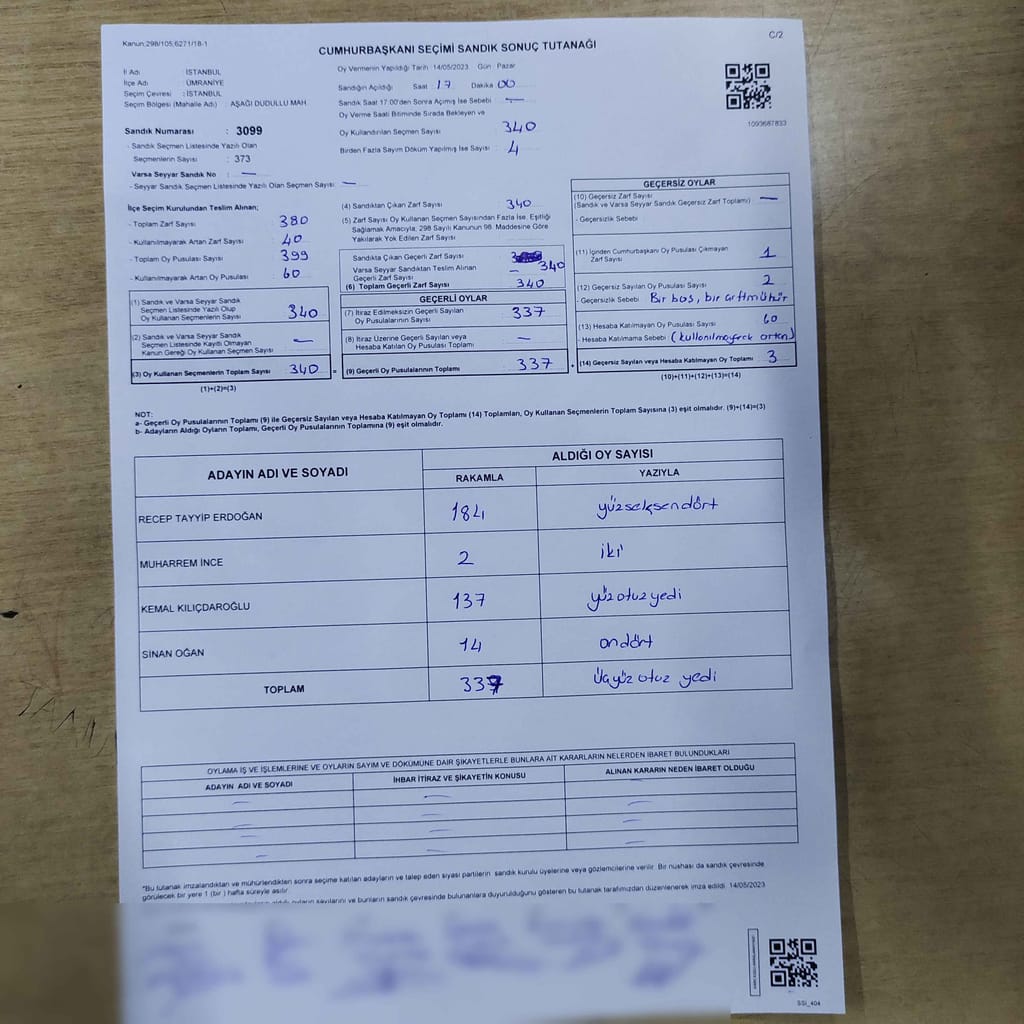 Kanun:298/105;6271/18-1
C/2
CUMHURBAŞKANI SEÇİMİ SANDIK SONUÇ TUTANAĞI
İl Adı : İSTANBUL
İlçe Adı : ÜMRANİYE
Seçim Çevresi : İSTANBUL
Seçim Bölgesi (Mahalle Adı) : AŞAĞI DUDULLU MAH.
Sandık Numarası : 3099
- Sandık Seçmen Listesinde Yazılı Olan
Seçmenlerin Sayısı : 373
Varsa Seyyar Sandık No : —
- Seyyar Sandık Seçmen Listesinde Yazılı Olan Seçmen Sayısı: —
Oy Vermenin Yapıldığı Tarih :14/05/2023 Gün : Pazar
Sandığın Açıldığı Saat : 17 Dakika : 00
Sandık Saat 17:00'den Sonra Açılmış İse Sebebi : —
Oy Verme Saati Bitiminde Sırada Bekleyen ve
Oy Kullandırılan Seçmen Sayısı : 340
Birden Fazla Sayım Döküm Yapılmış İse Sayısı : 4
1093687833
İlçe Seçim Kurulundan Teslim Alınan;
- Toplam Zarf Sayısı : 380
- Kullanılmayarak Artan Zarf Sayısı : 40
- Toplam Oy Pusulası Sayısı : 399
- Kullanılmayarak Artan Oy Pusulası : 60
(1) Sandık ve Varsa Seyyar Sandık
Seçmen Listesinde Yazılı Olup
Oy Kullanan Seçmenlerin Sayısı 340
(2) Sandık ve Varsa Seyyar Sandık
Seçmen Listesinde Kayıtlı Olmayan
Kanun Gereği Oy Kullanan Seçmen Sayısı —
(3) Oy Kullanan Seçmenlerin Toplam Sayısı 340
(1)+(2)=(3)
(4) Sandıktan Çıkan Zarf Sayısı : 340
(5) Zarf Sayısı Oy Kullanan Seçmen Sayısından Fazla İse, Eşitliği
Sağlamak Amacıyla, 298 Sayılı Kanunun 98. Maddesine Göre
Yakılarak Yok Edilen Zarf Sayısı :
Sandıkta Çıkan Geçerli Zarf Sayısı 340
Varsa Seyyar Sandıktan Teslim Alınan
Geçerli Zarf Sayısı —
(6) Toplam Geçerli Zarf Sayısı 340
GEÇERLİ OYLAR
(7) İtiraz Edilmeksizin Geçerli Sayılan
Oy Pusulalarının Sayısı : 337
(8) İtiraz Üzerine Geçerli Sayılan veya
Hesaba Katılan Oy Pusulası Toplamı —
(9) Geçerli Oy Pusulalarının Toplamı 337
GEÇERSİZ OYLAR
(10) Geçersiz Zarf Sayısı
(Sandık ve Varsa Seyyar Sandık Geçersiz Zarf Toplamı) —
- Geçersizlik Sebebi :
(11) İçinden Cumhurbaşkanı Oy Pusulası Çıkmayan
Zarf Sayısı 1
(12) Geçersiz Sayılan Oy Pusulası Sayısı : 2
- Geçersizlik Sebebi : Bir boş, bir çiftmühür
(13) Hesaba Katılmayan Oy Pusulası Sayısı : 60
- Hesaba Katılmama Sebebi : (kullanılmayarak artan)
(14) Geçersiz Sayılan veya Hesaba Katılmayan Oy Toplamı 3
(10)+(11)+(12)+(13)=(14)
NOT:
a- Geçerli Oy Pusulalarının Toplamı (9) ile Geçersiz Sayılan veya Hesaba Katılmayan Oy Toplamı (14) Toplamları, Oy Kullanan Seçmenlerin Toplam Sayısına (3) eşit olmalıdır. (9)+(14)=(3)
b- Adayların Aldığı Oyların Toplamı, Geçerli Oy Pusulalarının Toplamına (9) eşit olmalıdır.
ADAYIN ADI VE SOYADI
ALDIĞI OY SAYISI
RAKAMLA YAZIYLA
RECEP TAYYİP ERDOĞAN 184 yüzseksendört
MUHARREM İNCE 2 iki
KEMAL KILIÇDAROĞLU 137 yüzotuzyedi
SİNAN OĞAN 14 ondört
TOPLAM 337 Üçyüz otuz yedi
OYLAMA İŞ VE İŞLEMLERİNE VE OYLARIN SAYIM VE DÖKÜMÜNE DAİR ŞİKAYETLERLE BUNLARA AİT KARARLARIN NELERDEN İBARET BULUNDUKLARI
ADAYIN ADI VE SOYADI İHBAR İTİRAZ VE ŞİKAYETİN KONUSU ALINAN KARARIN NEDEN İBARET OLDUĞU
*Bu tutanak imzalandıktan ve mühürlendikten sonra seçime katılan adayların ve talep eden siyasi partilerin sandık kurulu üyelerine veya gözlemcilerine verilir. Bir nüshası da sandık çevresinde
görülecek bir yere 1 (bir) hafta süreyle asılır.
aldık oyların sayılarını ve bunların sandık çevresinde bulunanlara duyurulduğunu gösteren bu tutanak tarafımızdan düzenlenerek imza edildi. 14/05/2023
SSİ_404